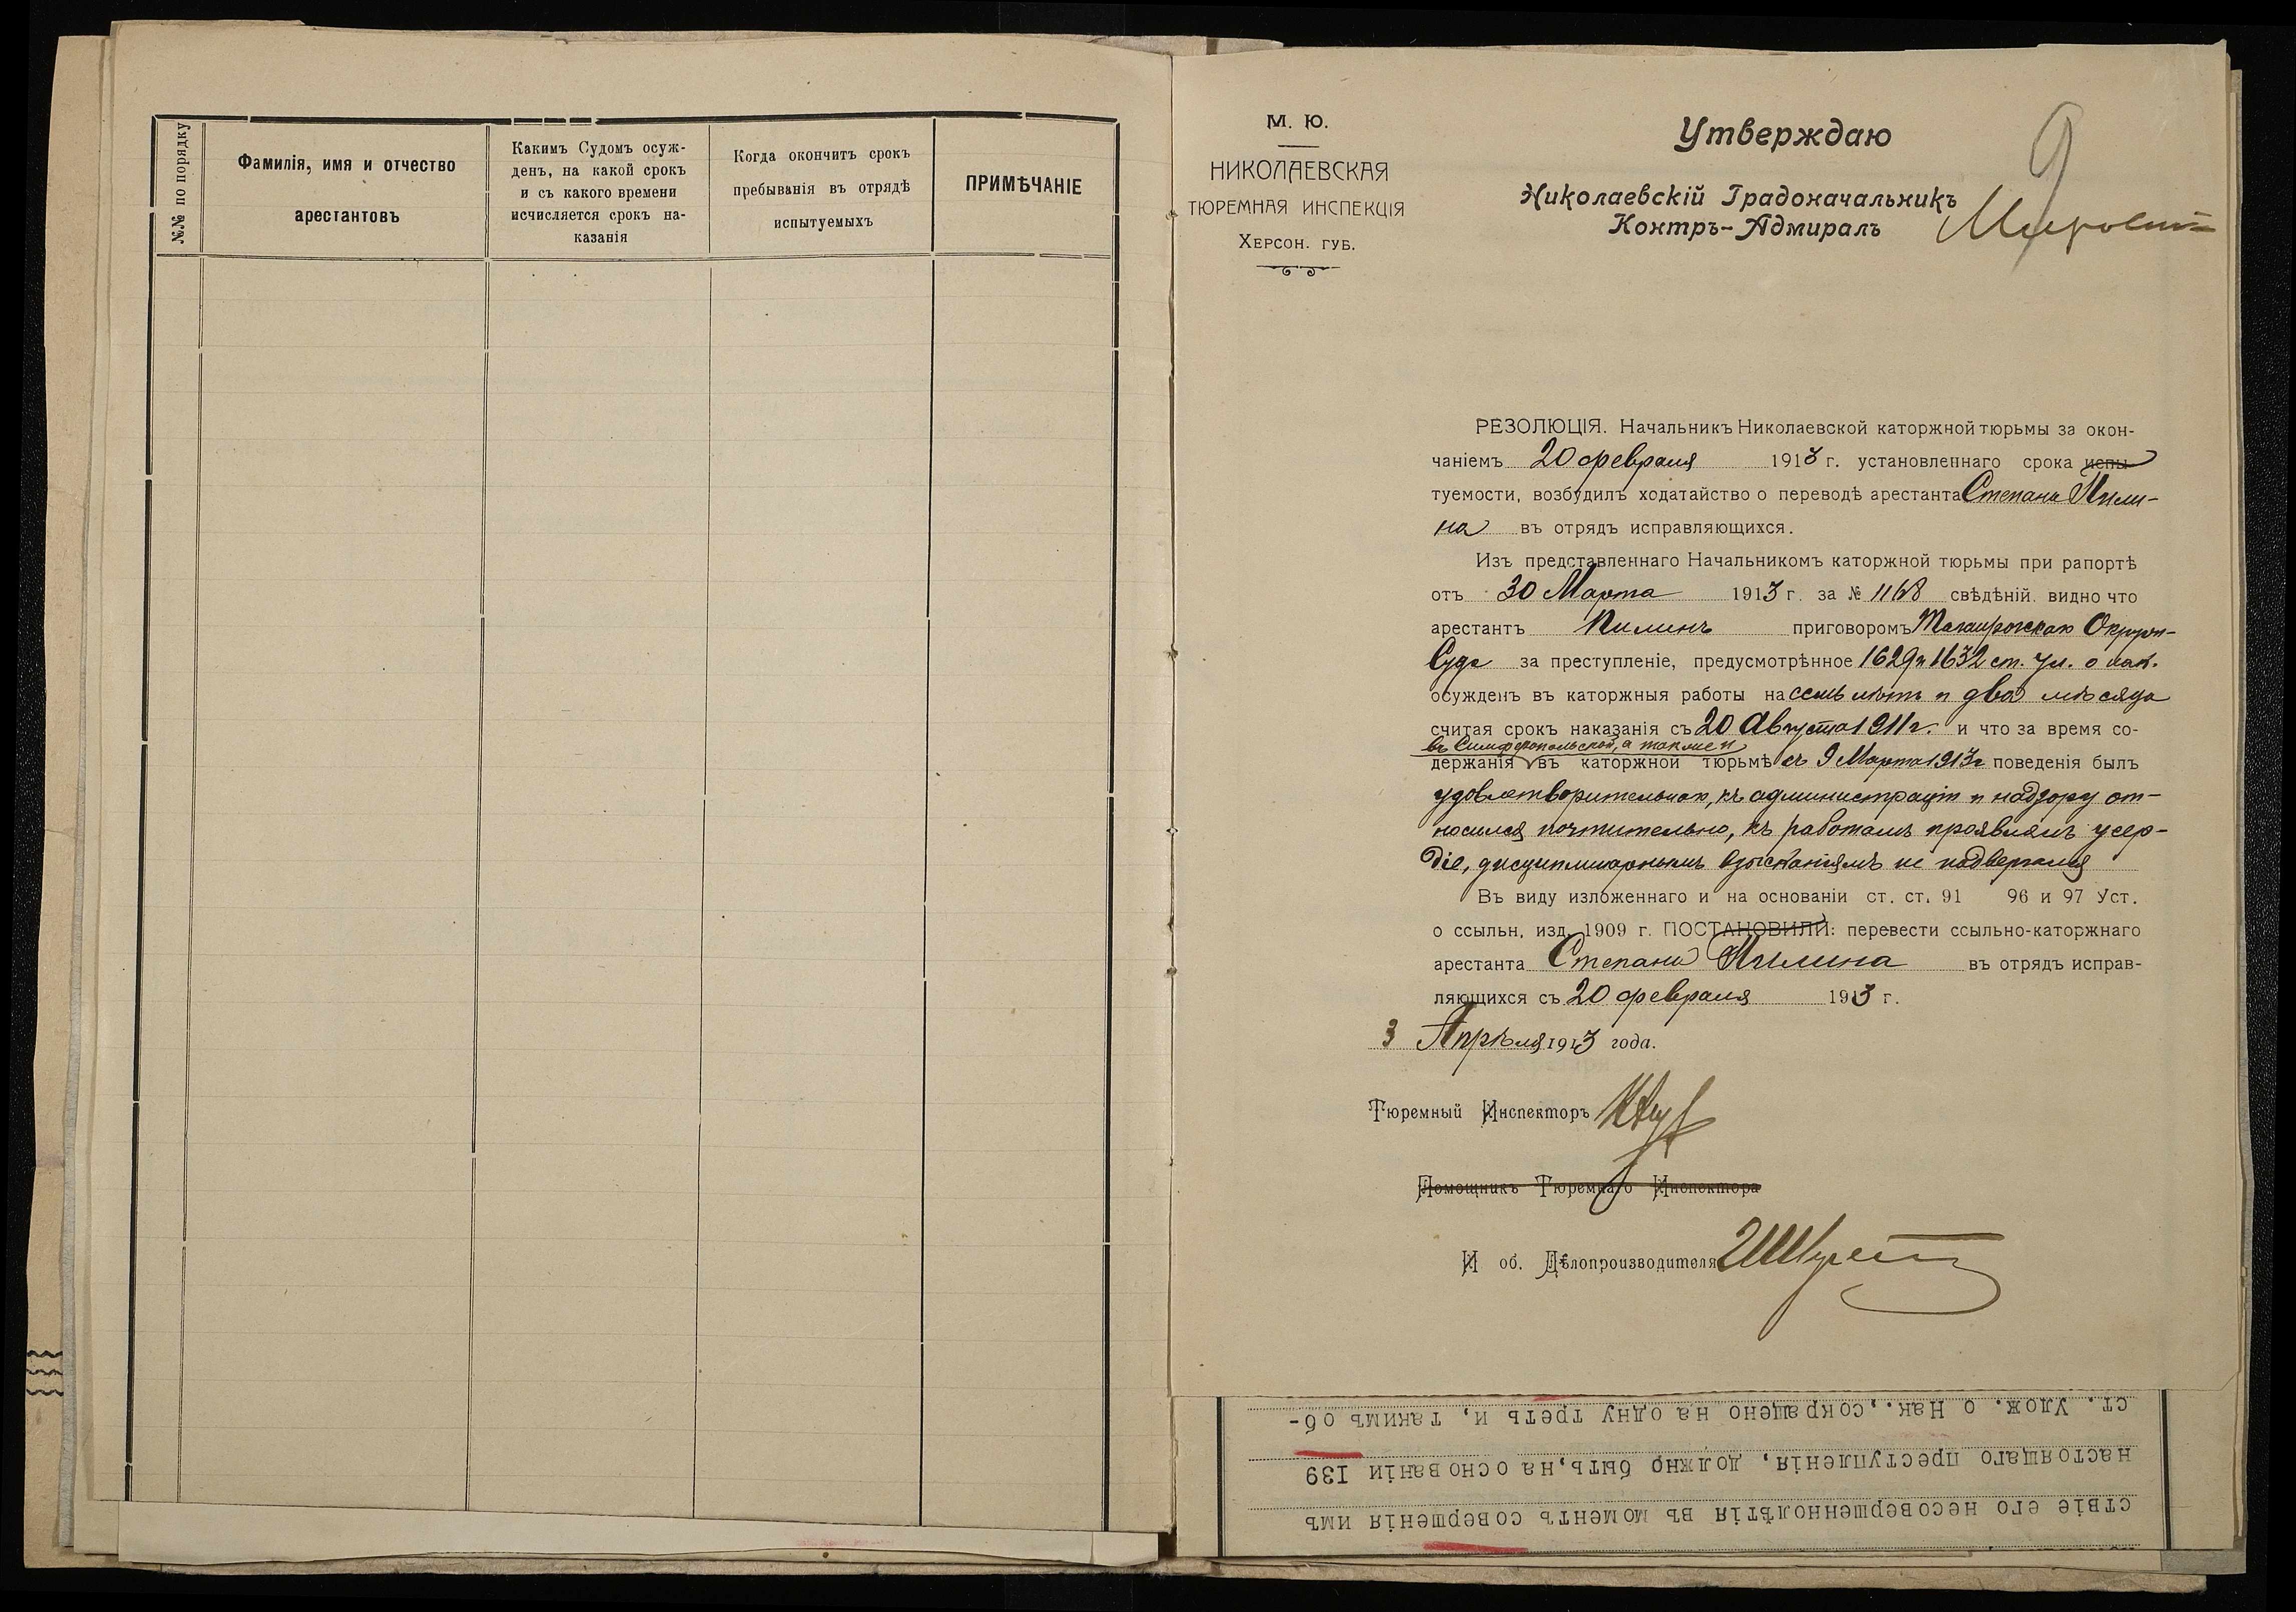 №№ по порядку
Фамилія, имя и отчество
арестантовъ
Какимъ Судомъ осуж-
денъ, на какой срокъ
и съ какого времени
исчисляется срокъ на-
казанія
Когда окончитъ срокъ
пребыванія въ отрядѣ
испытуемыхъ
ПРИМѢЧАНІЕ
М. Ю.
НИКОЛАЕВСКАЯ
ТЮРЕМНАЯ ИНСПЕКЦІЯ
ХЕРСОН. ГУБ.
9
Утверждаю
Николаевскій Градоначальникъ
Контръ-Адмиралъ
РЕЗОЛЮЦІЯ. Начальникъ Николаевской каторжной тюрьмы за окон-
чаніемъ 20 февраля 1913 г. установленнаго срока испы
туемости, возбудилъ ходатайство о переводѣ арестанта Степана Пили-
на въ отрядъ исправляющихся.
Изъ представленнаго Начальникомъ каторжной тюрьмы при рапортѣ
отъ 30 Марта 1913 г. за № 1168 свѣдѣній. видно что
арестантъ Пилинъ приговоромъ Таганрогскаго Окружн-
Суда за преступленіе, предусмотрѣнное 1629 и 1632 ст. Ул. о нак.
осужденъ въ каторжныя работы на семь лѣтъ и два мѣсяца
считая срокъ наказанія съ 20 Августа 1911 г. и что за время со-
въ Симферопольской, а также и
держанія въ каторжной тюрьмѣ съ 9 Марта 1913 г поведенія былъ
удовлетворительнаго, къ администраціи и надзору от-
носился почтительно, къ работамъ проявлялъ усер-
діе, дисциплинарнымъ взысканіямъ не подвергался
Въ виду изложеннаго и на основаніи ст. ст. 91 96 и 97 Уст.
о ссыльн. изд. 1909 г. ПОСТАНОВИЛИ: перевести ссыльно-каторжнаго
арестанта Степана Пилина въ отрядъ исправ-
ляющихся съ 20 февраля 1913 г.
3 Апрѣля 1913 года.
Тюремный Инспекторъ
Помощникъ Тюремнаго Инспектора
И об. Дѣлопроизводителя
ст. Улож. о Нак.,сокращено на одну треть и, такимъ об-
настоящаго преступленія, должно быть,на основаніи 139
ствіе его несовершеннолѣтія въ моментъ совершенія имъ